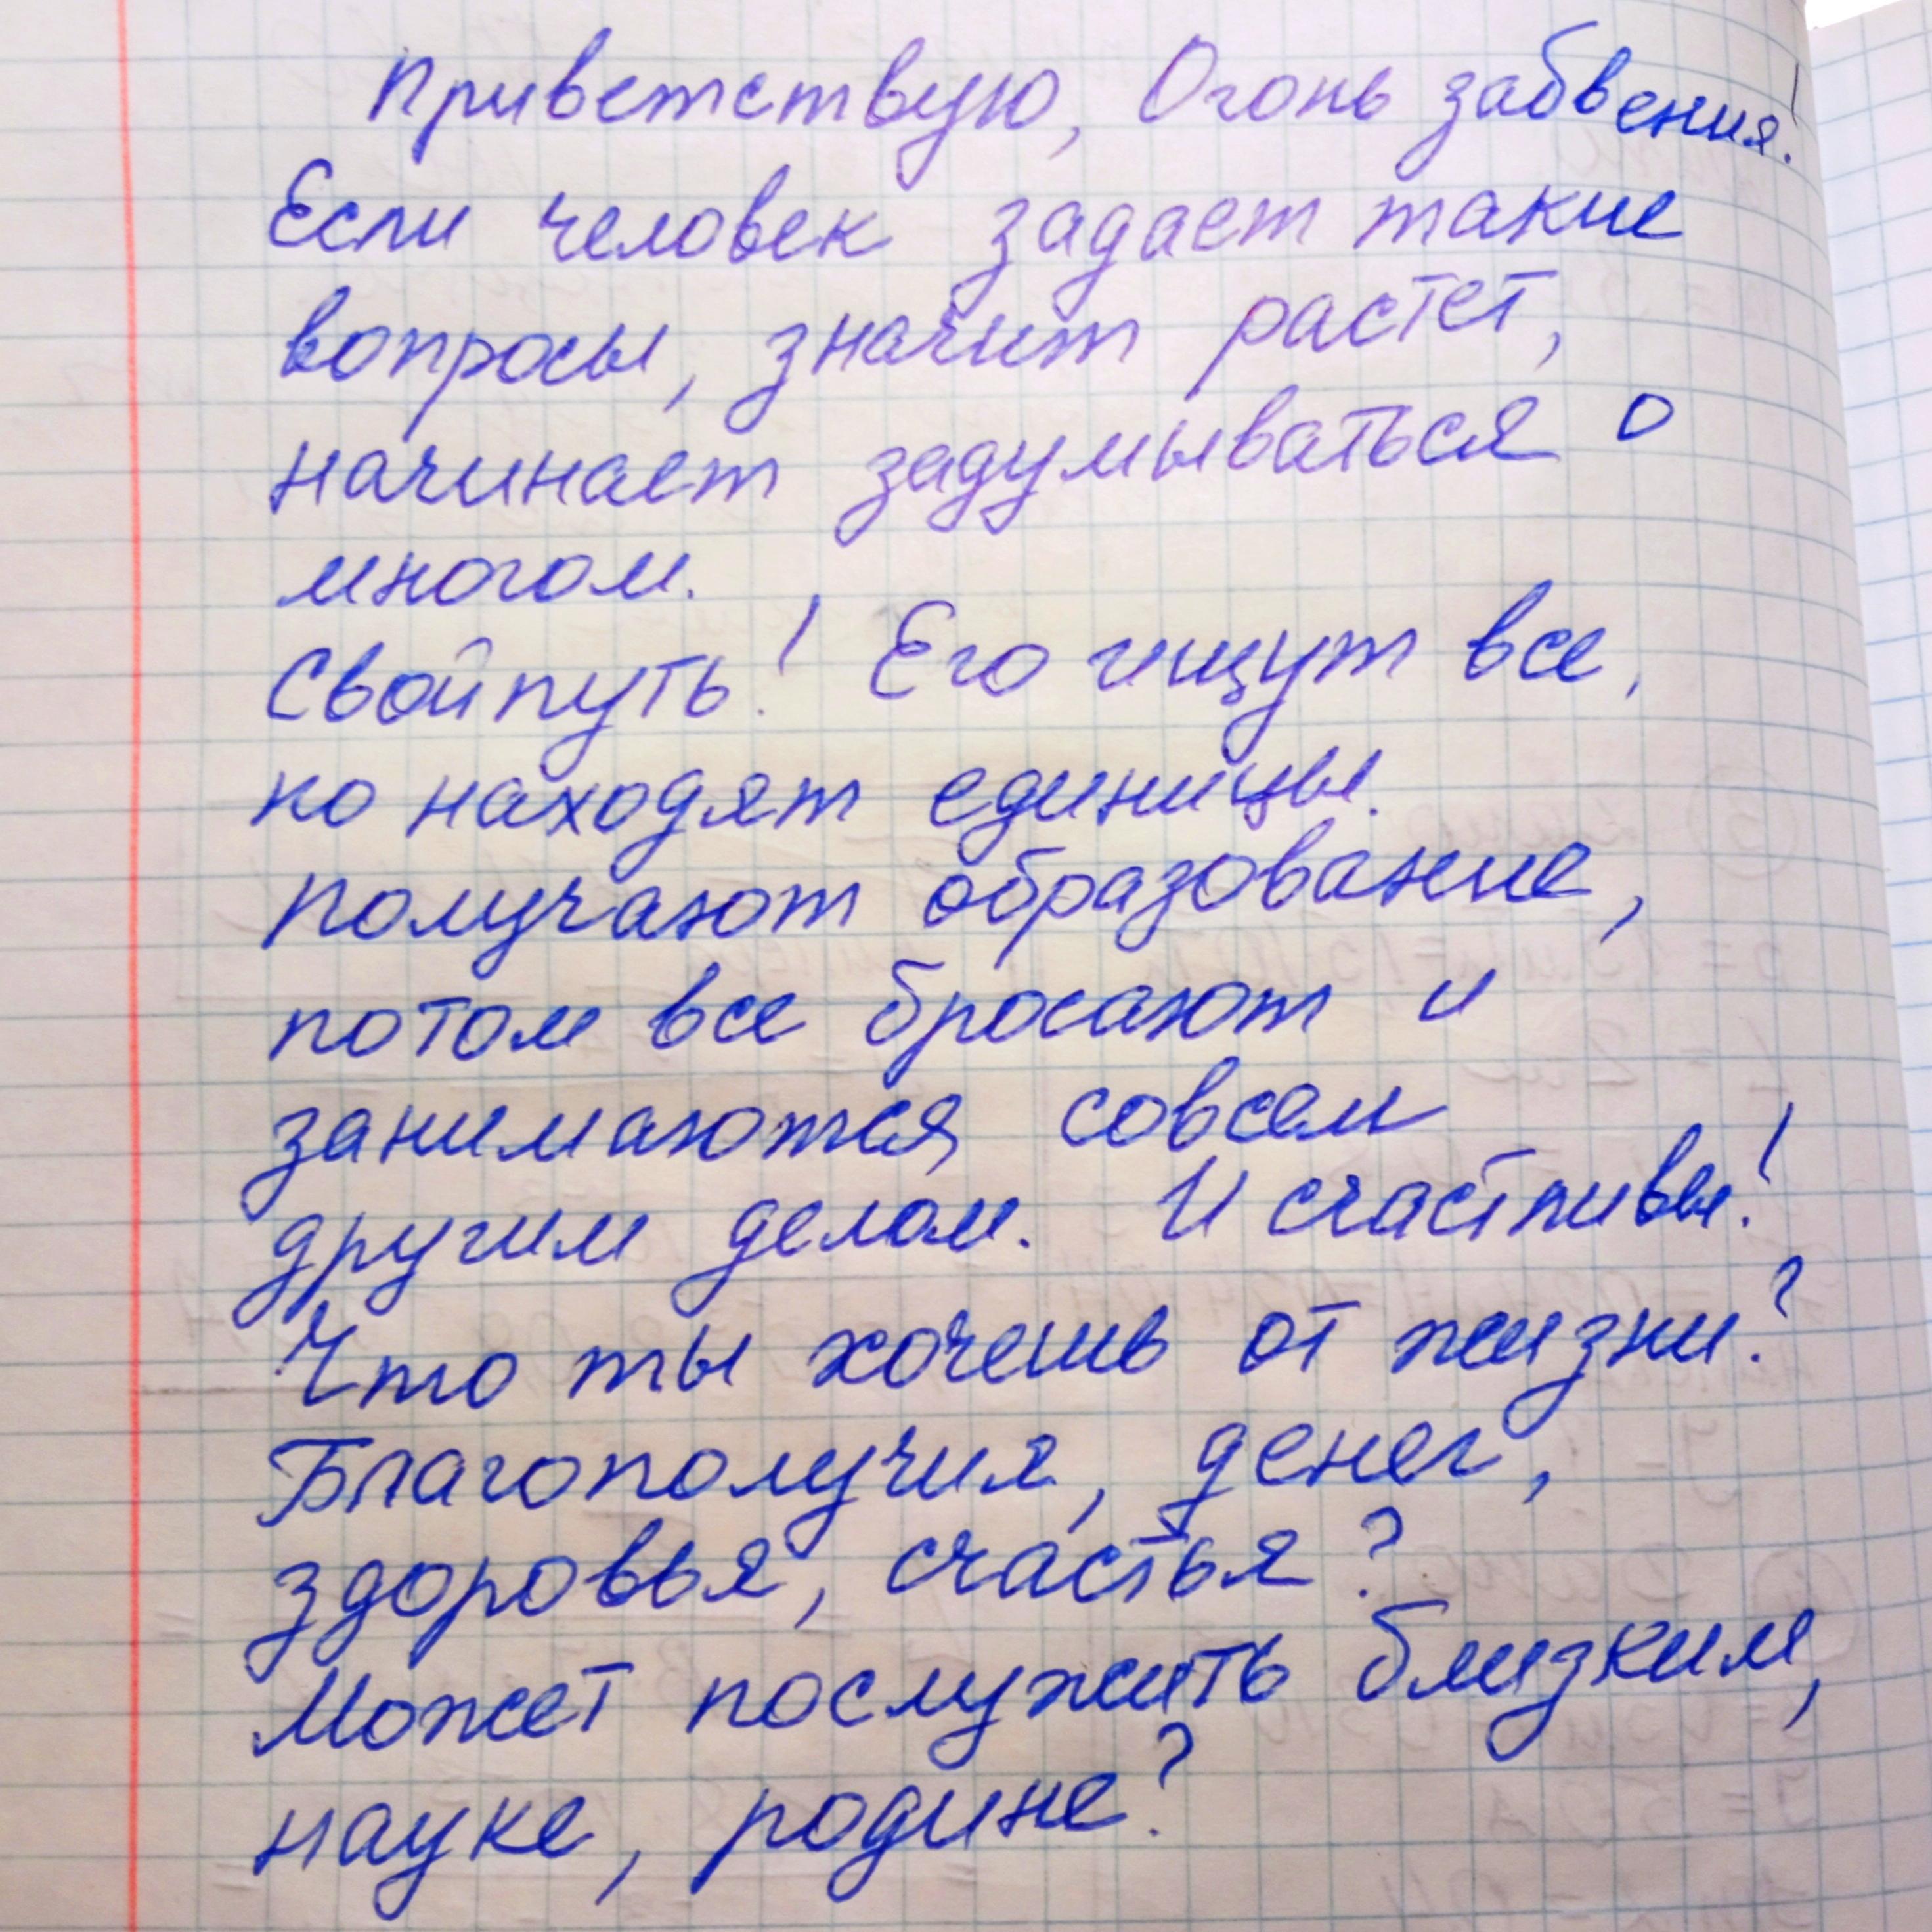 Приветствую, Огонь забвения!
Если человек задает такие
вопросы, значит растет,
начинает задумываться о
многом.
Свой путь! Его ищут все,
но находят единицы.
Получают образование,
потом все бросают и
занимаются совсем
другим делом. И счастливы!
Что ты хочешь от жизни?
Благополучия, денег,
здоровья, счастья?
Может послужить близким,
науке, родине?